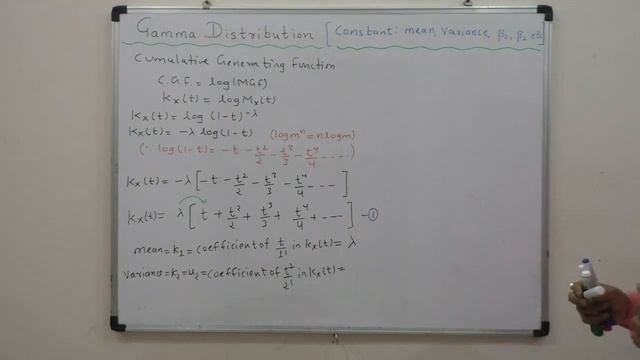 Gamma Distribution [Constant: mean, variance, β₁, β₂ etc]
Cumulative Generating Function
C.G.F. = log(MGF)
Kx(t) = log Mx(t)
Kx(t) = log (1-t)^-λ
Kx(t) = -λ log(1-t) (log mⁿ = n log m)
(∵ log(1-t) = -t - t²/2 - t³/3 - t⁴/4 ....)
Kx(t) = -λ[-t - t²/2 - t³/3 - t⁴/4 ---]
Kx(t) = λ[t + t²/2 + t³/3 + t⁴/4 + ---] -①
mean = k₁ = coefficient of t/1! in Kx(t) = λ
Variance = k₂ = u₂ = coefficient of t²/2! in Kx(t) =